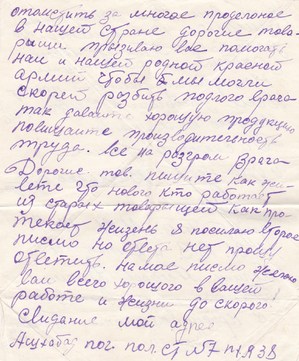 отомстить за многое проделоное
в нашей стране дорогие тов-
рыщи призиваю вас помогать
нам и нашей родной красной
армии чтобы мы могли
скорей разбить подлого врага
так давайте хорошую продукцию
повишаите производительность
труда. все на розгром врага
Дорогие. тов. пишите как жи-
вете что нового кто работает
из старых товарищей как про-
текает жизень я посилаю второе
письмо но ответа нет прошу
ответить. на мое письмо желаю
вам всего хорошого в вашей
работе и жизни до скорого
Свидание мой адрес
Ашхабад пог. пол. СТ №7